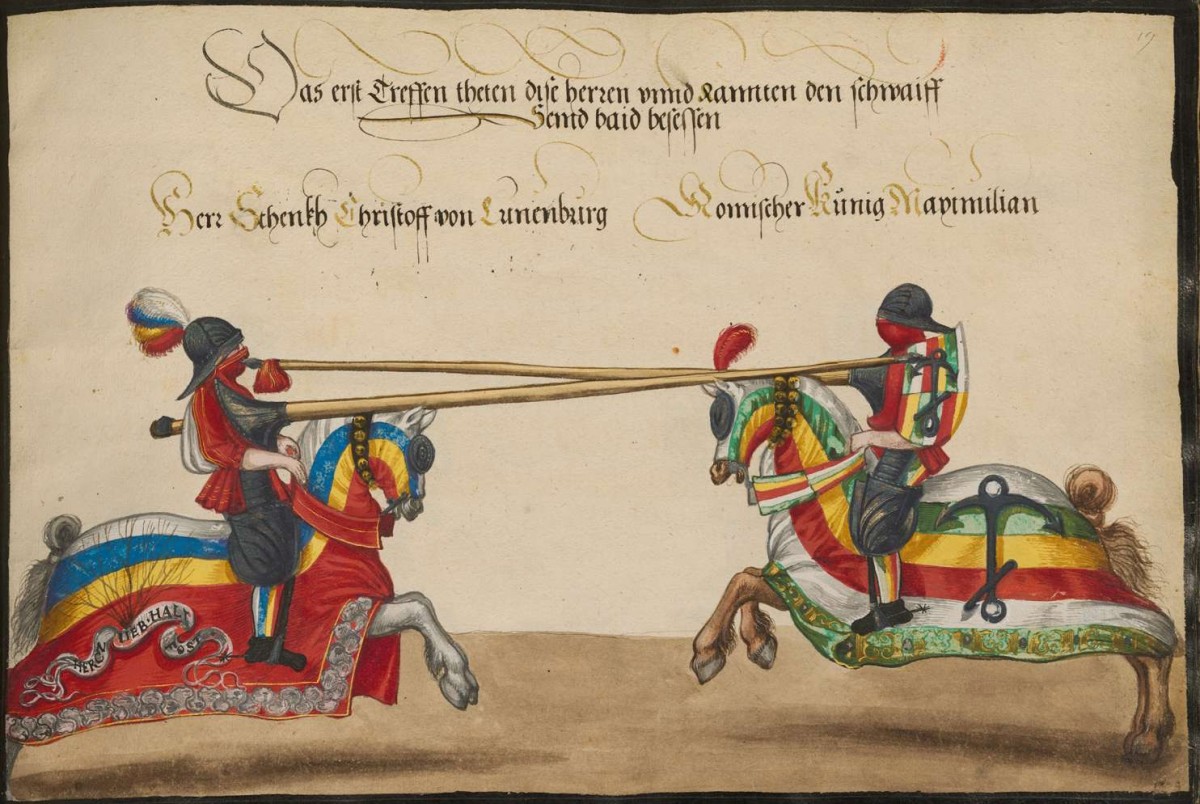 19
Das erst Treffen theten dise herren vnnd Rannten den schwaiff
Seind baid besessen
Herr Schenkh Christoff von Lunenburg
Romischer Kůnig Maximilian
HERCN LIEB HALT